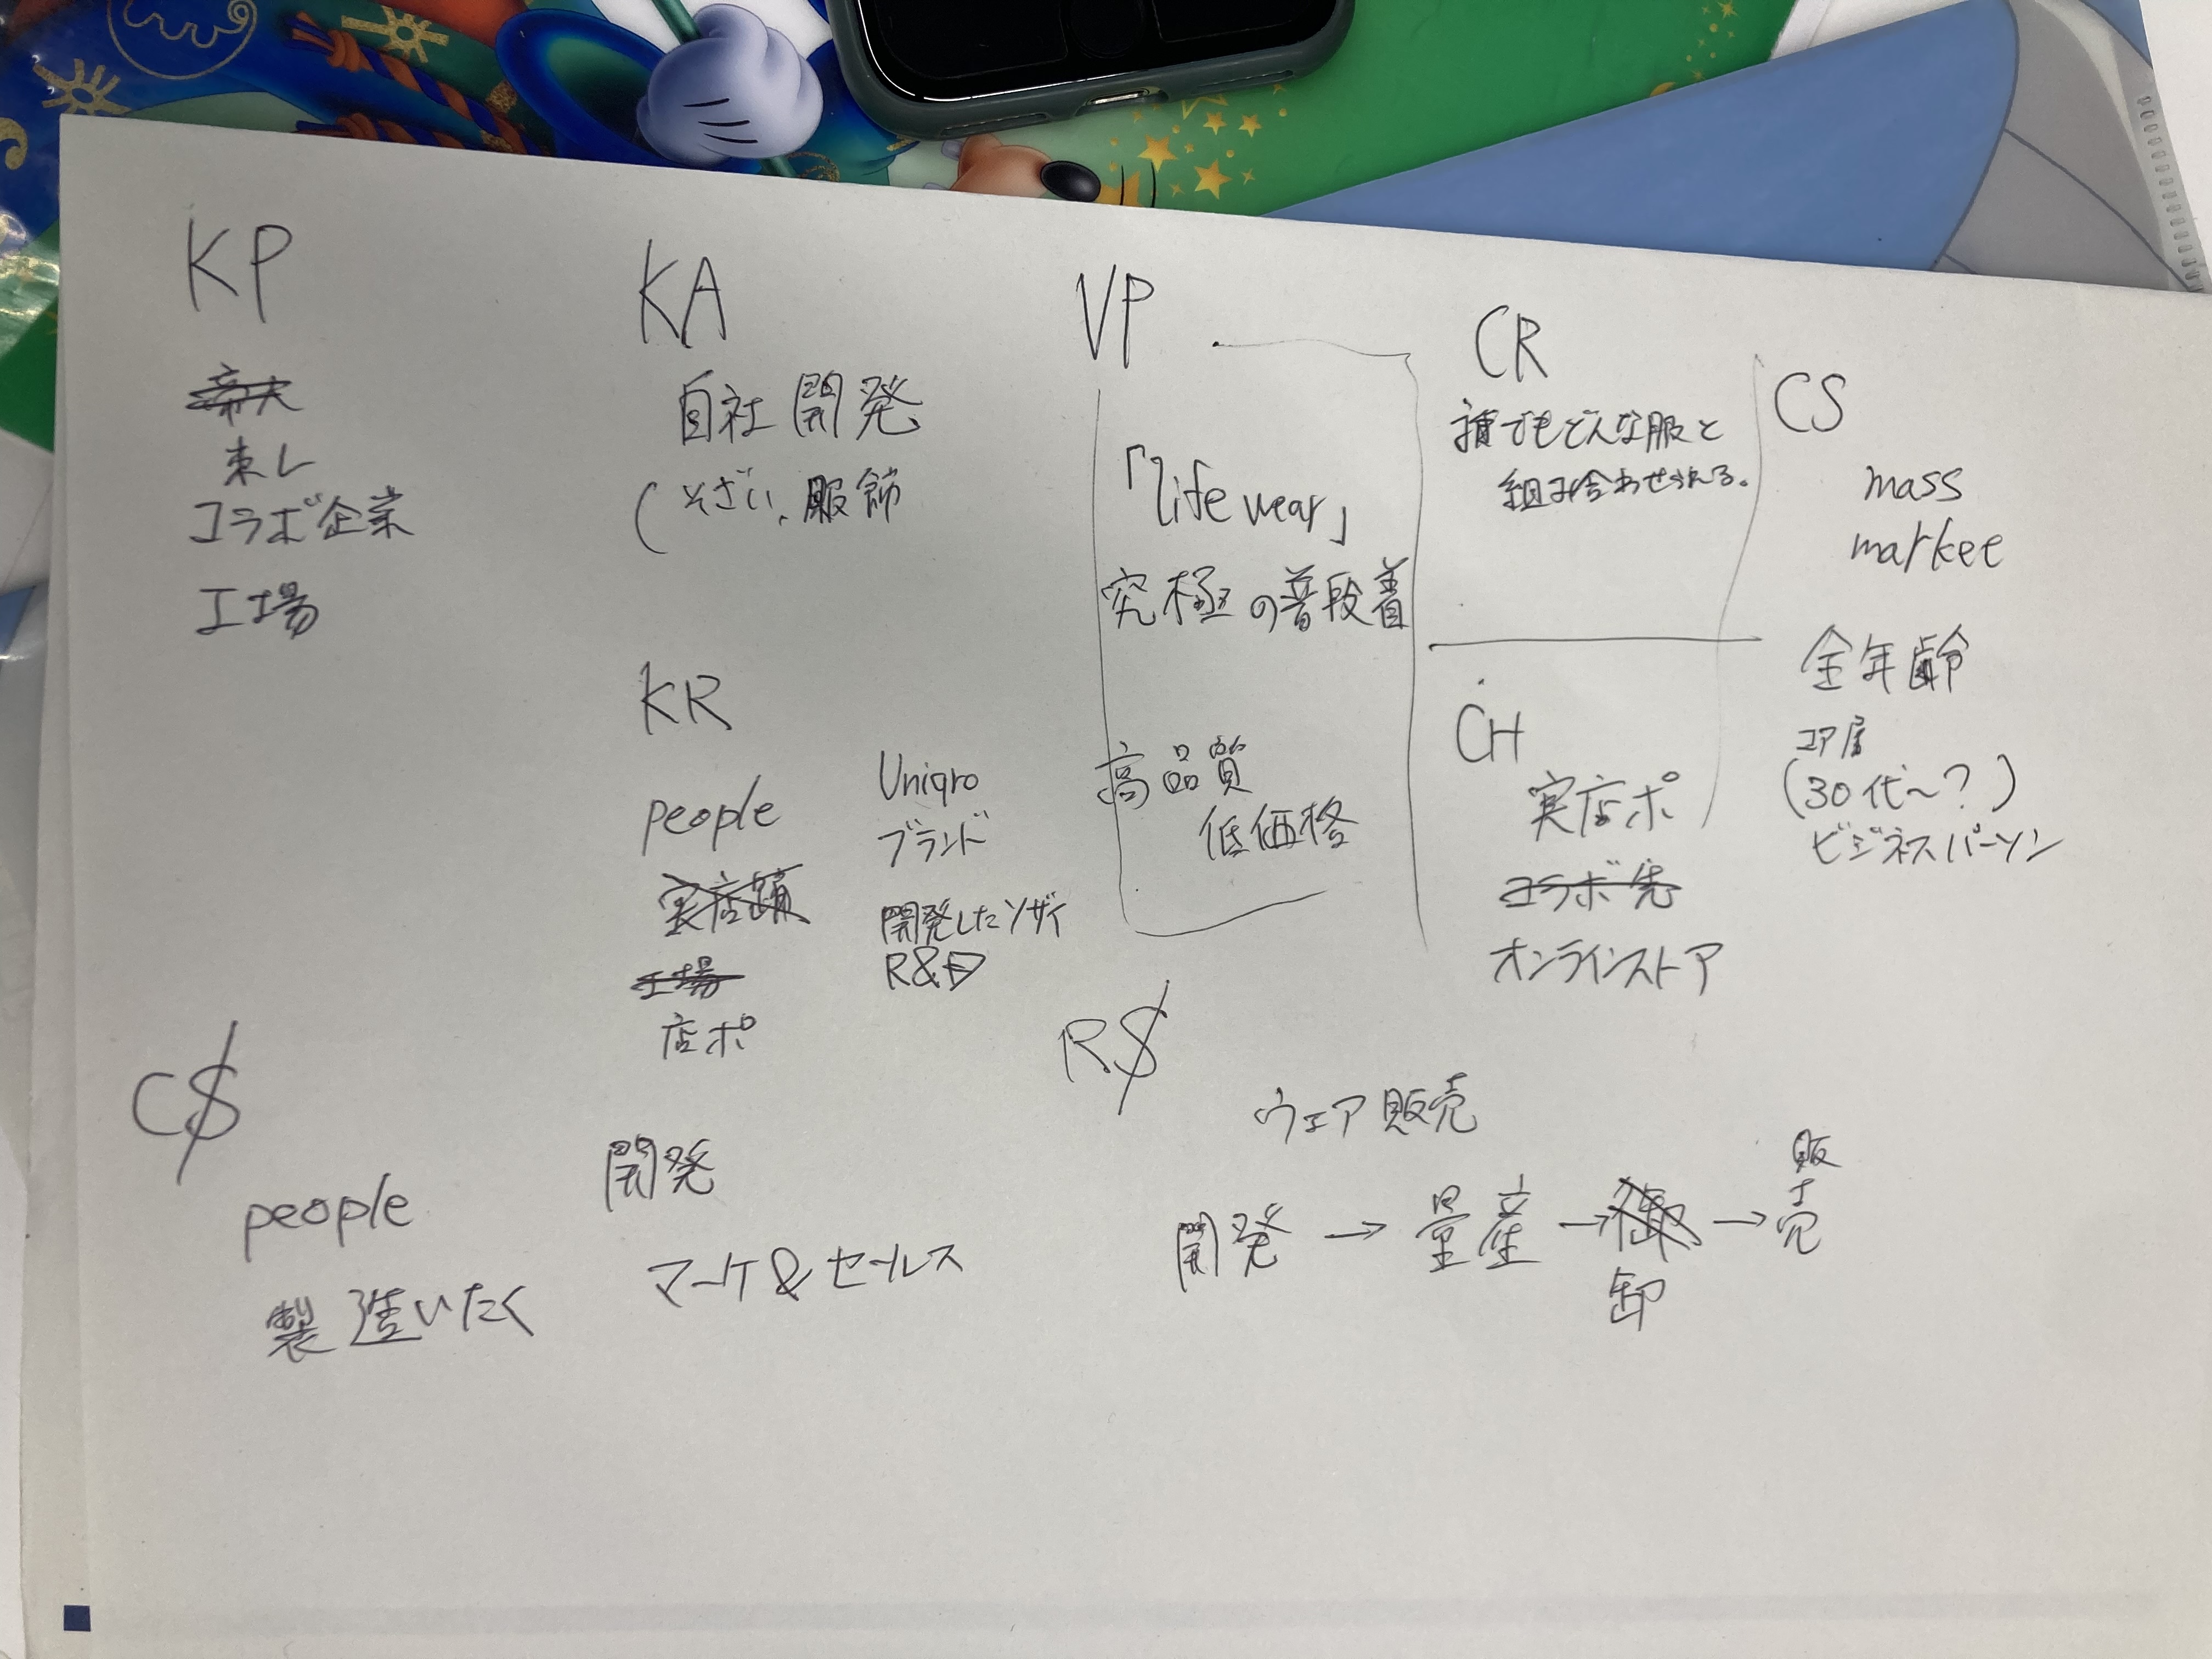 KP
東レ
コラボ企業
工場
KA
自社開発
(そざい、服飾
KR
people
店ポ
Uniqro
ブランド
開発したソザイ
R&D
VP
「life wear」
究極の普段着
高品質
低価格
CR
誰でもどんな服と
組み合わせられる。
CH
実店ポ
コラボ先
オンラインストア
CS
mass
market
全年齢
コア層
(30代〜?)
ビジネスパーソン
C$
people
製造いたく
開発
マーケ&セールス
R$
ウェア販売
開発→量産→卸→販売